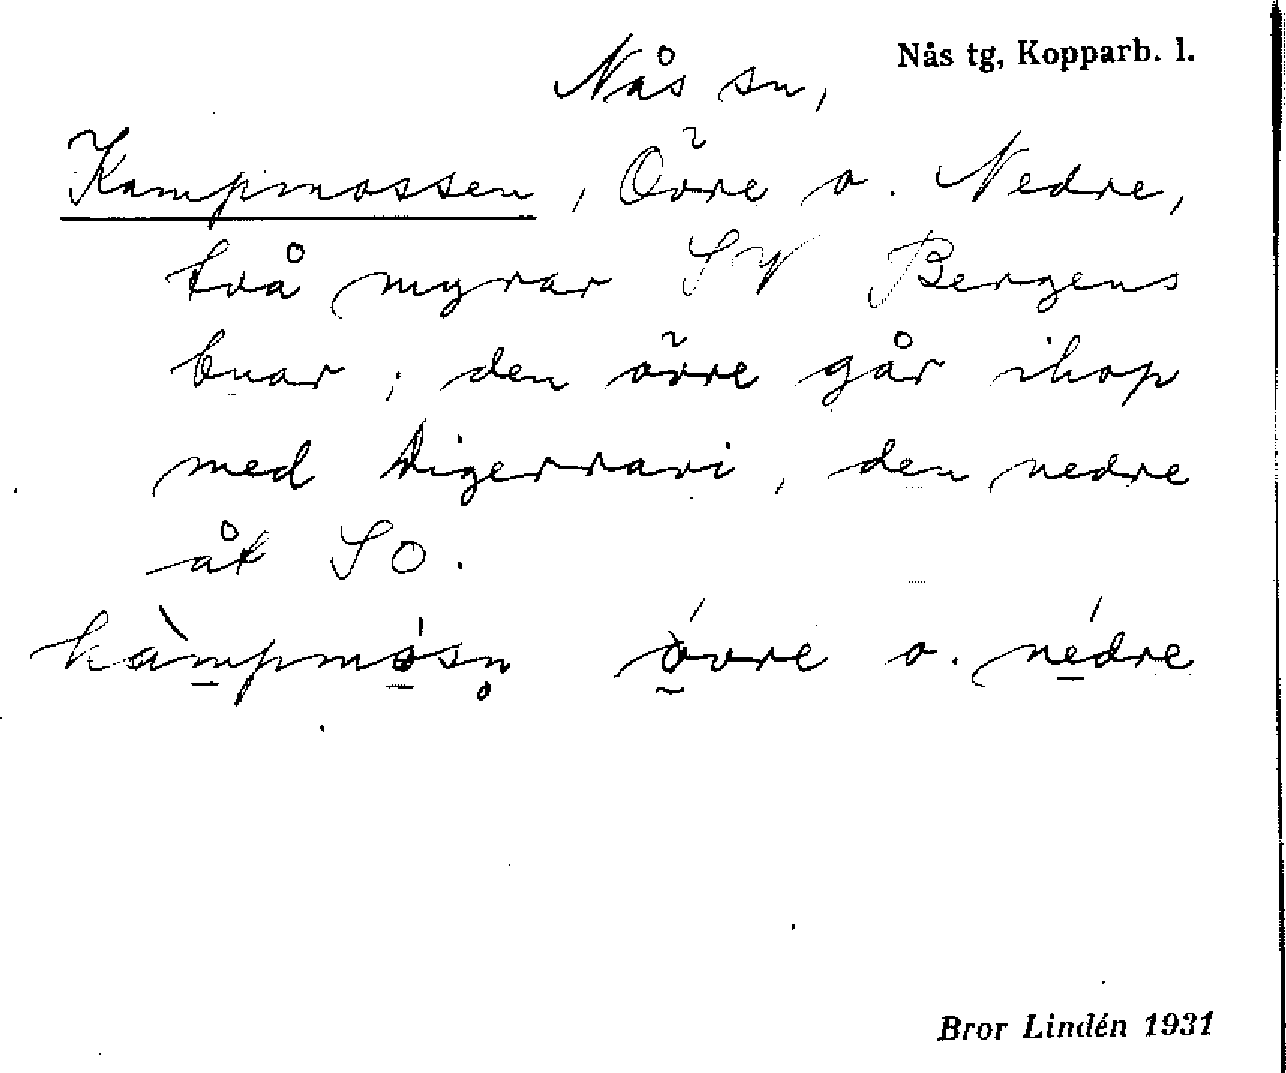 Nås tg, Kopparb. l.
Nås sn,
Kampmossen, Övre o. Nedre,
två myrar SV Bergens
buar; den övre går ihop
med digerravi, den nedre
åt SO.
kàmpmósn̥ óvre o. nédre
Bror Lindén 1931